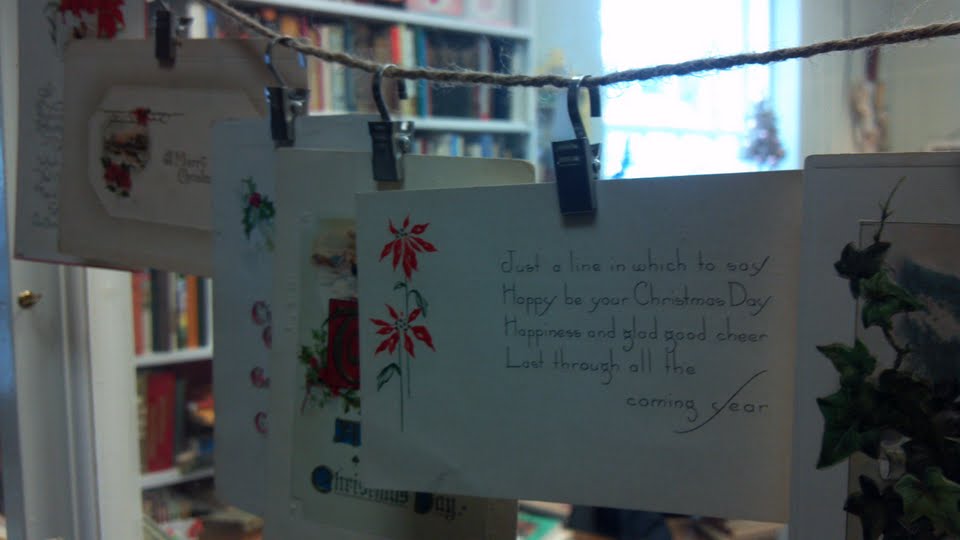 A Merry
Christmas
Just a line in which to say
Happy be your Christmas Day
Happiness and glad good cheer
Last through all the
coming year
Christmas Day.